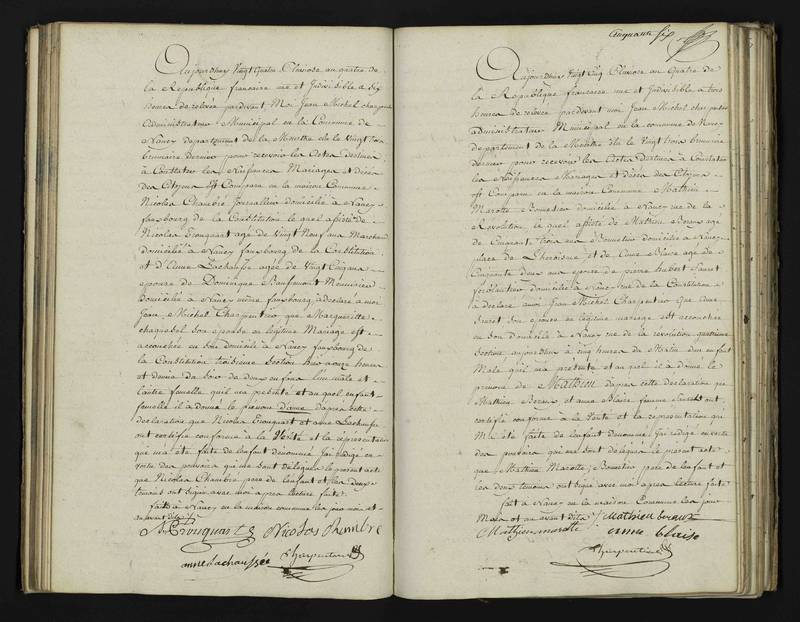 Aujourdhuy Vingt Quatre Pluviose au quatre de
la Republique francaise une et Indivisible a Six
heures de relevée pardevant Moi Jean Michel charpentier
Administrateur Municipal en la Commune de
Nancy departement de la Meurthe élu le Vingt trois
brumaire dernier pour recevoir les Actes destinés
à Constater les Naissances Mariages et décès
des Citoyens est Comparu en la maison Commune
Nicolas Chambré Journallier domicilié à Nancy
faubourg de la Constitution le quel assisté de
Nicolas Trouquart agé de Vingt Neuf ans Marchand
domicilié à Nancy faubourg de la Constitution
et d'Anne Lachaussée agée de Vingt Cinq ans
epouse de Dominique Menuisier
domicilié à Nancy même faubourg à déclaré à moi
Jean Michel Charpentier que Margueritte
son epouse en légitime Mariage est
accouchée en son domicile à Nancy faubourg de
la Constitution troisieme Section hier onze heures
et demie du soir de deux enfans l'un male et
l'autre femelle qu'il m'a présenté et au quel enfant
femelle il à donné le prénom d'anne d'apres cette
déclaration que Nicolas Trouquart et anne Lachaussée
ont certifiée conforme à la Vérité et la représentation
qui m'a été faite de l'enfant denommé J'ai rédigé en
vertu des pouvoirs qui me sont délégués le present acte
que Nicolas Chambré pere de l'enfant et les deux
temoins ont signé avec moi apres lecture faite
fait à Nancy en la maison commune les jour mois et
an avant dits
N Trouquart Nicolas Chambre
anne lachaussée Charpentier
Cinquante six
Aujourdhuy Vingt Cinq Pluviose au Quatre de
la République francaise une et Indivisible à trois
heures de relevée pardevant moi Jean Michel charpentier
administrateur Municipal en la commune de Nancy
departement de la Meurthe élu le Vingt trois brumaire
dernier pour recevoir les Actes destinés à Constater
les Naissances Mariages et décès des Citoyens
est Comparu en la maison Commune Mathieu
Marotte domicilié à Nancy rue de la
Révolution, le quel assisté de Mathieu agé
de Cinquante trois ans domicilié à Nancy
place de et de Anne Blaise agée de
Cinquante deux ans epouse de pierre hubert
ferblantier domicilié à Nancy rue de la Constitution
à déclaré à moi Jean Michel Charpentier que Anne
son epouse en légitime mariage est accouchée
en son domicile à Nancy rue de la révolution quatrieme
Section aujourdhuy à cinq heures du Matin d'un enfant
Male qu'il m'a présenté et au quel il à donné le
prénom de Mathieu d'apres cette déclaration que
Mathieu et anne Blaise femme ont
certifiée conforme à la Verité et la représentation qui
m'a été faite de l'enfant denommé, J'ai rédigé en vertu
des pouvoirs qui me sont délégués le present acte
que Mathieu Marotte pere de l'enfant et
les deux temoins ont signé avec moi apres lecture faite
fait à Nancy en la maison Commune les jour
Mois et an avant dits Mathieu
Mathieu marotte anne blaise
Charpentier